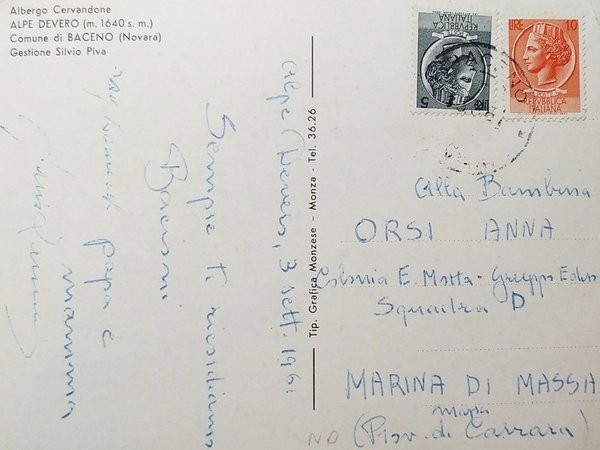 Albergo Cervandone
ALPE DEVERO (m. 1640 s. m.)
Comune di BACENO (Novara)
Gestione Silvio Piva
Alpe Devero, 3 sett. 196
Sempre ti ricordiamo
Bacioni
papà e
mamma
Tip. Grafica Monzese - Monza - Tel. 36.26
5 LIRE
REPUBBLICA
ITALIANA
LIRE 10
POSTE
REPUBBLICA
ITALIANA
BACENO
Alla Bambina
ORSI ANNA
Colonia E. Motta - Gruppo
Squadra D
MARINA DI MASSA
massa
(Prov. di Carrara)